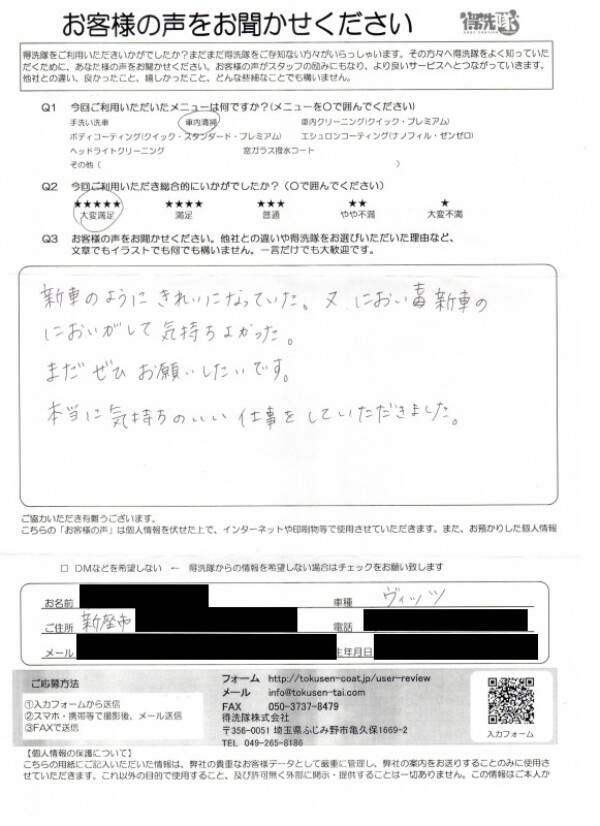 お客様の声をお聞かせください
得洗隊
得洗隊をご利用いただきいかがでしたか?まだまだ得洗隊をご存知ない方々がいらっしゃいます。その方々へ得洗隊をよく知っていた
だくために、あなた様の声をお聞かせください。お客様の声がスタッフの励みにもなり、より良いサービスへとつながっていきます。
他社との違い、良かったこと、嬉しかったこと、どんな些細なことでも構いません。
Q1 今回ご利用いただいたメニューは何ですか?(メニューを〇で囲んでください)
手洗い洗車 車内清掃 車内クリーニング(クイック・プレミアム)
ボディコーティング(クイック・スタンダード・プレミアム) エシュロンコーティング(ナノフィル・ゼンゼロ)
ヘッドライトクリーニング 窓ガラス撥水コート
その他( )
Q2 今回ご利用いただき総合的にいかがでしたか?(〇で囲んでください)
★★★★★ ★★★★ ★★★ ★★ ★
大変満足 満足 普通 やや不満 大変不満
Q3 お客様の声をお聞かせください。他社との違いや得洗隊をお選びいただいた理由など、
文章でもイラストでも何でも構いません。一言だけでも大歓迎です。
新車のように きれいになっていた。又 におい 新車の
においがして 気持ちよかった。
まだ ぜひ お願いしたいです。
本当に 気持ちのいい 仕事を していただきました。
ご協力いただき有難うございます。
こちらの「お客様の声」は個人情報を伏せた上で、インターネットや印刷物等で使用させていただきます。また、お預かりした個人情報
□ DMなどを希望しない ← 得洗隊からの情報を希望しない場合はチェックをお願い致します
お名前 車種 ヴィッツ
ご住所 新座市 電話
メール 生年月日
ご応募方法
①入力フォームから送信
②スマホ・携帯等で撮影後、メール送信
③FAXで送信
フォーム http://tokusen-coat.jp/user-review
メール info@tokusen-tai.com
FAX 050-3737-8479
得洗隊株式会社
〒356-0051 埼玉県ふじみ野市亀久保1669-2
TEL 049-265-8186
入力フォーム
【個人情報の保護について】
こちらの用紙にご記入いただいた情報は、弊社の貴重なお客様データとして厳重に管理し、弊社の案内をお送りすることのみに使用さ
せていただきます。これ以外の目的で使用すること、及び許可無く外部に開示・提供することは一切ありません。この情報はご本人か